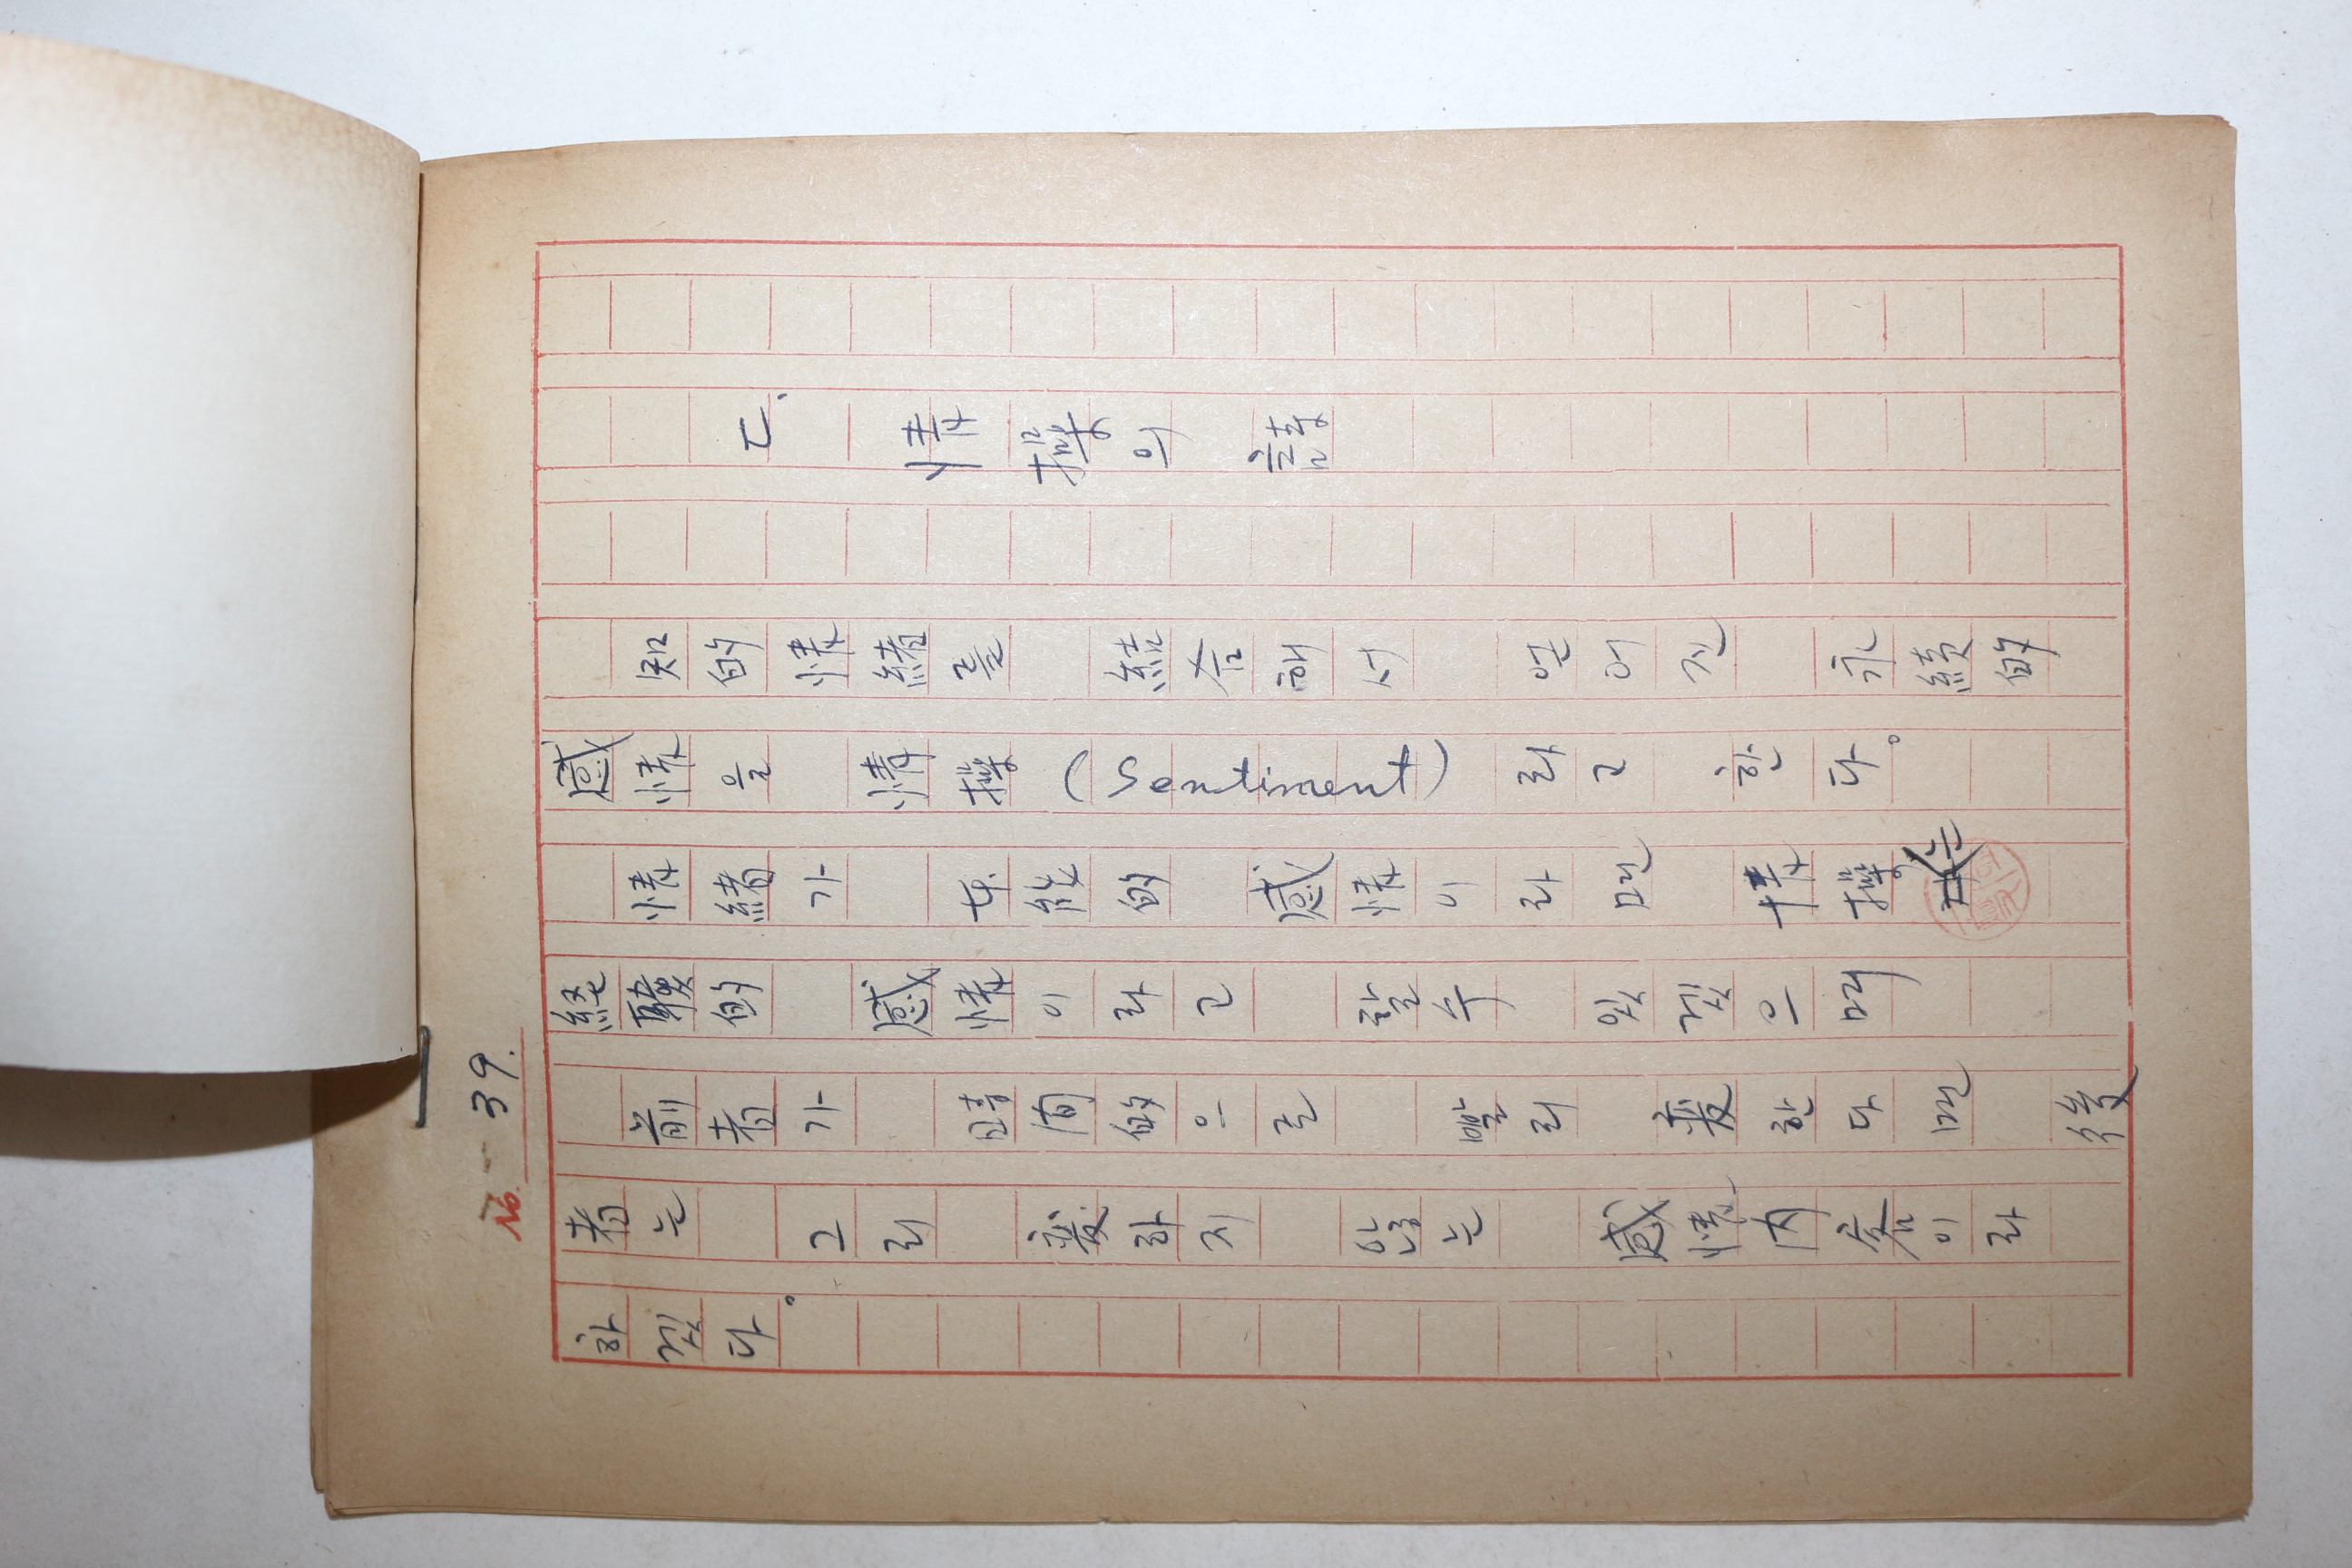 No. 39.
ㄷ. 情操의 詩
知的 情緒를 結合해서 얻어진 永續的
感情을 情操(Sentiment)라고 한다。
情緒가 本能的 感情이라면 情操는
經驗的 感情이라고 할 수 있겠으며
前者가 時间的으로 빨리 変한다면 後
者는 그리 変하지 않는 感情内容이라
하겠다。